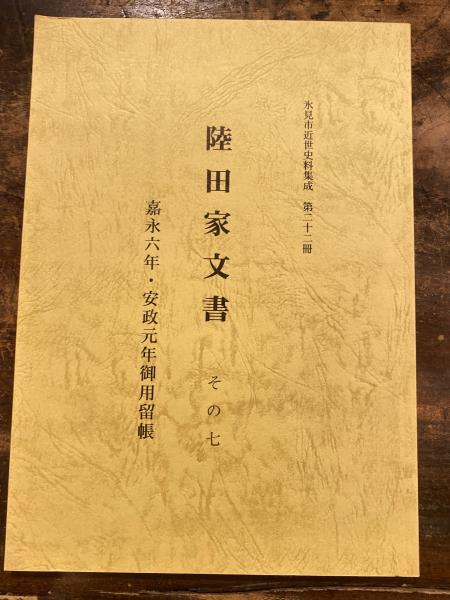 氷見市近世史料集成　第二十二冊
陸田家文書　その七
嘉永六年・安政元年御用留帳